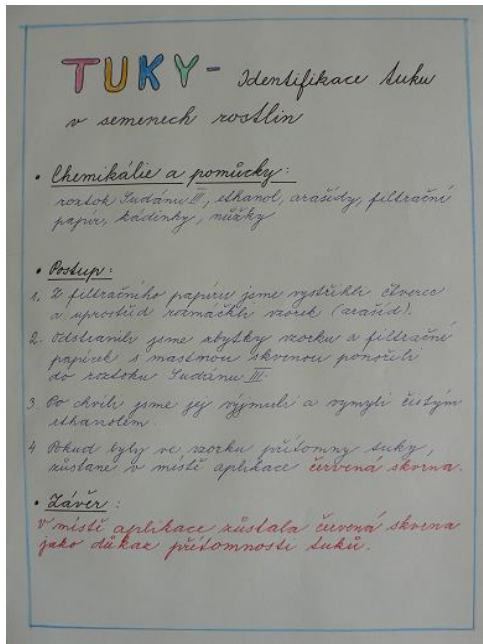 TUKY - Identifikace tuku
v semenech rostlin
• Chemikálie a pomůcky:
roztok Sudánu III, ethanol, arašídy, filtrační
papír, kádinky, nůžky
• Postup:
1. Z filtračního papíru jsme vystřihli čtverec
a uprostřed rozmáčkli vzorek (arašíd).
2. Odstranili jsme zbytky vzorku a filtrační
papírek s mastnou skvrnou ponořili
do roztoku Sudánu III.
3. Po chvíli jsme jej vyjmuli a vymyli čistým
ethanolem.
4 Pokud byly ve vzorku přítomny tuky,
zůstane v místě aplikace červená skvrna.
• Závěr:
V místě aplikace zůstala červená skvrna
jako důkaz přítomnosti tuků.